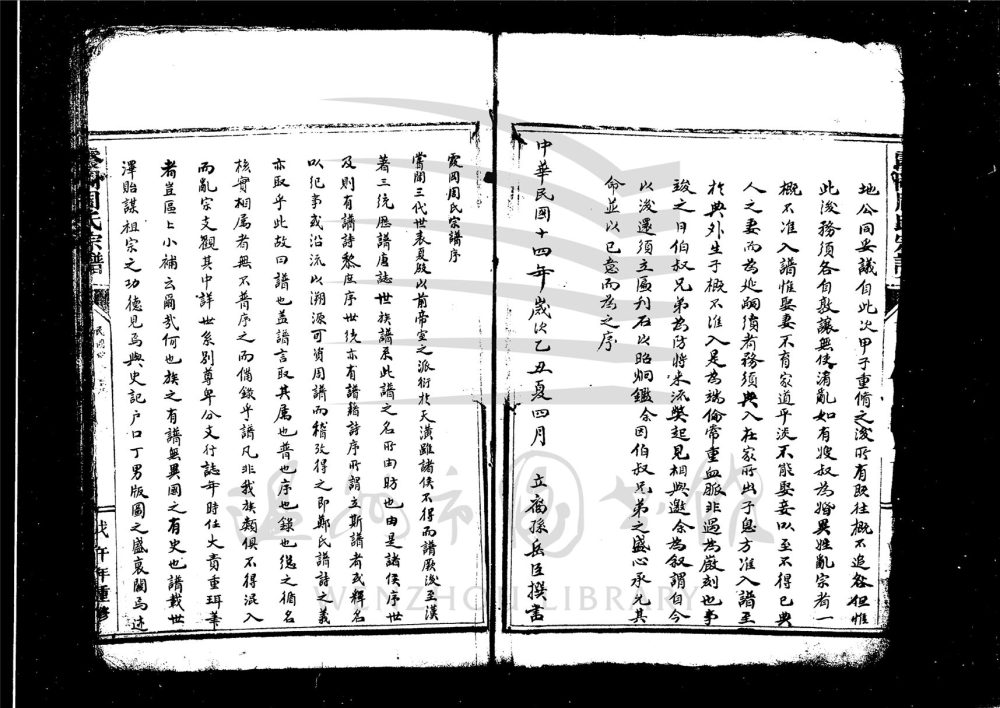 地公同妥議自此次甲子重脩之後所有既往概不追咎但惟
此後務須各自敦讓無使淆亂如有嫂叔為婚異姓亂宗者一
概不准入譜惟娶妻不育家道乎淡不能娶妾以至不得已典
人之妻而為延嗣續者務須典入在家所出子息方准入譜至
於典外生子概不准入是為瑞倫常重血脈非過為嚴刻也事
竣之日伯叔兄弟為防將來流獘起見相與邀余為叙謂自今
以後還須立區刊石以昭烱鑑余因伯叔兄弟之盛心承允其
命並以已意而為之序
中華民國十四年歲次乙丑夏四月 立裔孫岳臣撰書
霞岡周氏宗譜序
嘗聞三代世表夏殷以前帝室之派衍於天潢雖諸侯不得而譜厥後至漢
著三統歷譜唐誌世族譜系此譜之名所由昉也由是諸侯序世
及則有譜詩黎庶序世統亦有譜籍詩序所謂立斯譜者或釋名
以犯事或沿流以溯源可資周譜而稽攷得之即鄭氏譜詩之義
亦取乎此故曰譜也盖譜言取其属也普也序也錄也緦之循名
核實相属者無不普序之而偹錄乎譜凡非我族類俱不得混入
而亂宗支觀其中詳世系別尊卑分支行誌年時任大責重珥筆
者豈區區小補云爾哉何也族之有譜無異國之有史也譜載世
澤貽謀祖宗之功德見焉與史記户口丁男版圖之盛衰關焉述
周氏宗譜
民國
戊午年重修
WENZHOU LIBRARY